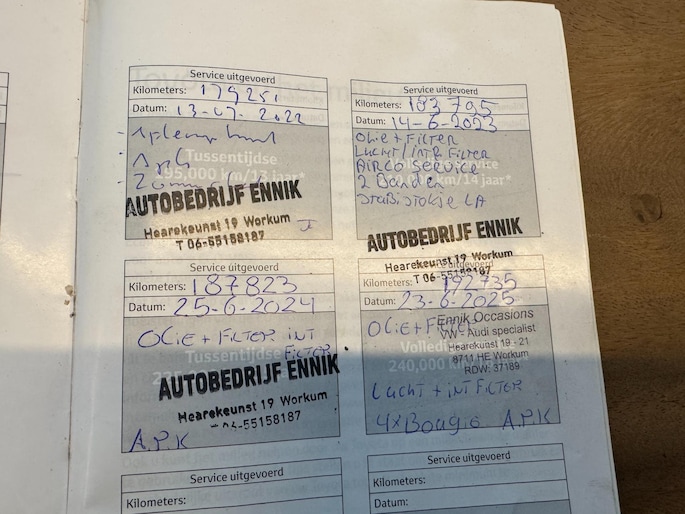 Service uitgevoerd
Kilometers: 179251
Datum: 13-07-2022
Tussentijdse
195,000 km/13 jaar*
AUTOBEDRIJF ENNIK
Hearekeunst 19 Workum
T 06-55158187
Service uitgevoerd
Kilometers: 183795
Datum: 14-6-2023
OLiE + FiLTER
LUCHT/intR FiLTER
AiRCO SERViCE
2 Banden
km/14 jaar*
AUTOBEDRIJF ENNIK
Hearekeunst 19 Workum
T 06-55158187
Service uitgevoerd
Kilometers: 187823
Datum: 25-6-2024
OLiE + FiLTER iNT
FiLTER
Tussentijdse
AUTOBEDRIJF ENNIK
Hearekeunst 19 Workum
-55158187
A.P.K
Kilometers: 192735
Datum: 23-6-2025
OLiE + FiLTER
Ennik Occasions
VW - Audi specialist
Hearekeunst 19 - 21
8711 HE Workum
RDW: 37189
240,000
LUCHT + iNT FiLTER
4x Bougie A.P.K
Service uitgevoerd
Kilometers:
Service uitgevoerd
Kilometers:
Datum: